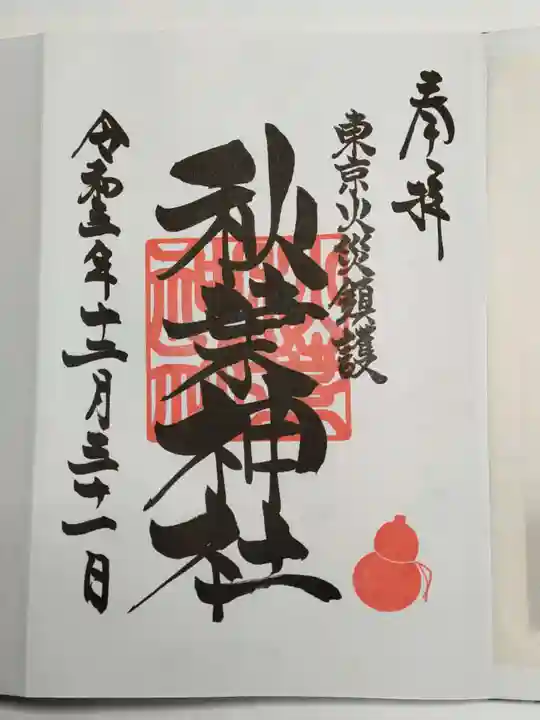 奉拝
東京火災鎮護
秋葉神社
令和三年十二月三十一日